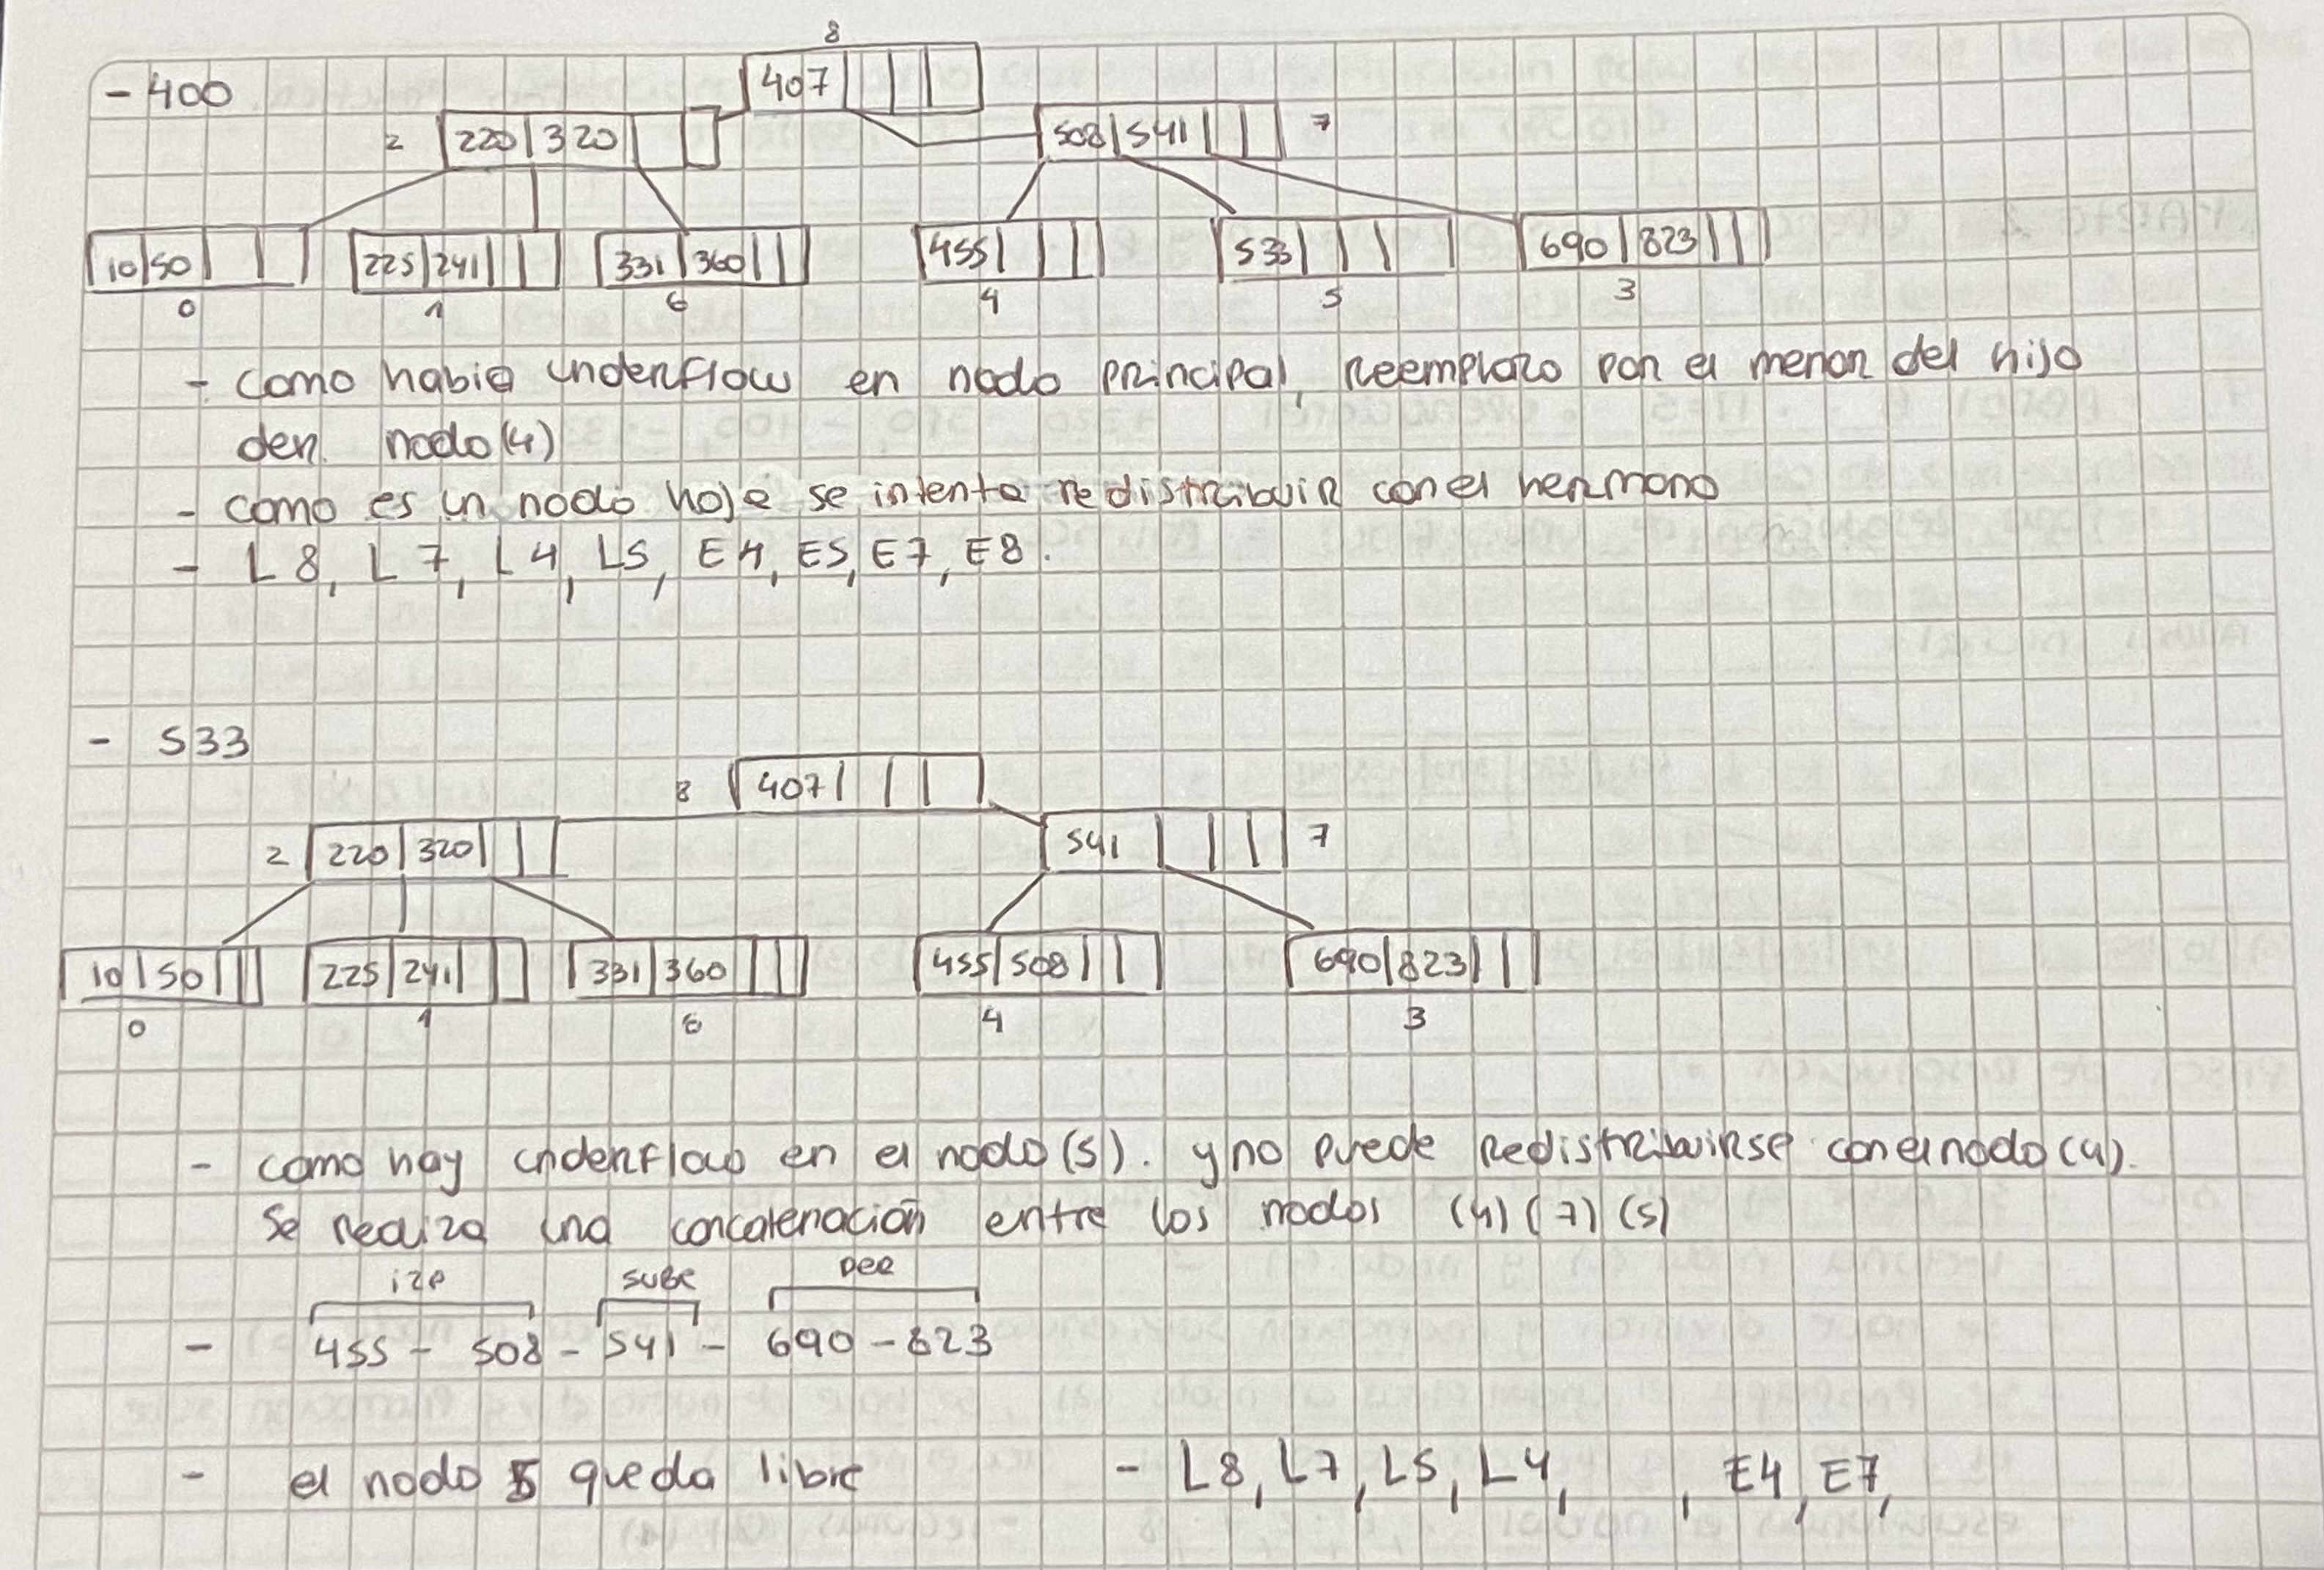 8
- 400
407
2 220 320
508 541 7
10 50
225 241
331 360
455
533
690 823
0 1 6 4 5 3
- como había underflow en nodo principal, reemplazo por el menor del hijo
der. nodo (4)
- como es un nodo hoja se intenta redistribuir con el hermano
- L8, L7, L4, L5, E4, E5, E7, E8.
- 533
8 407
2 220 320
541 7
10 50
225 241
331 360
455 508
690 823
0 1 6 4 3
- como hay underflow en el nodo (5). y no puede redistribuirse con el nodo (4).
se realiza una concatenación entre los nodos (4) (7) (5)
izq sube der
- 455 - 508 - 541 - 690 - 823
- el nodo 5 queda libre - L8, L7, L5, L4, , E4, E7,